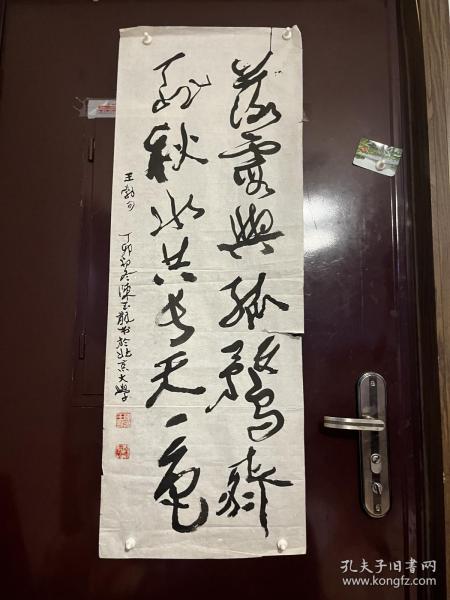 落霞与孤鹜齐
飞秋水共长天一色
王勃句 丁卯初冬陈玉龙书於北京大学
孔夫子旧书网
www.kongfz.com